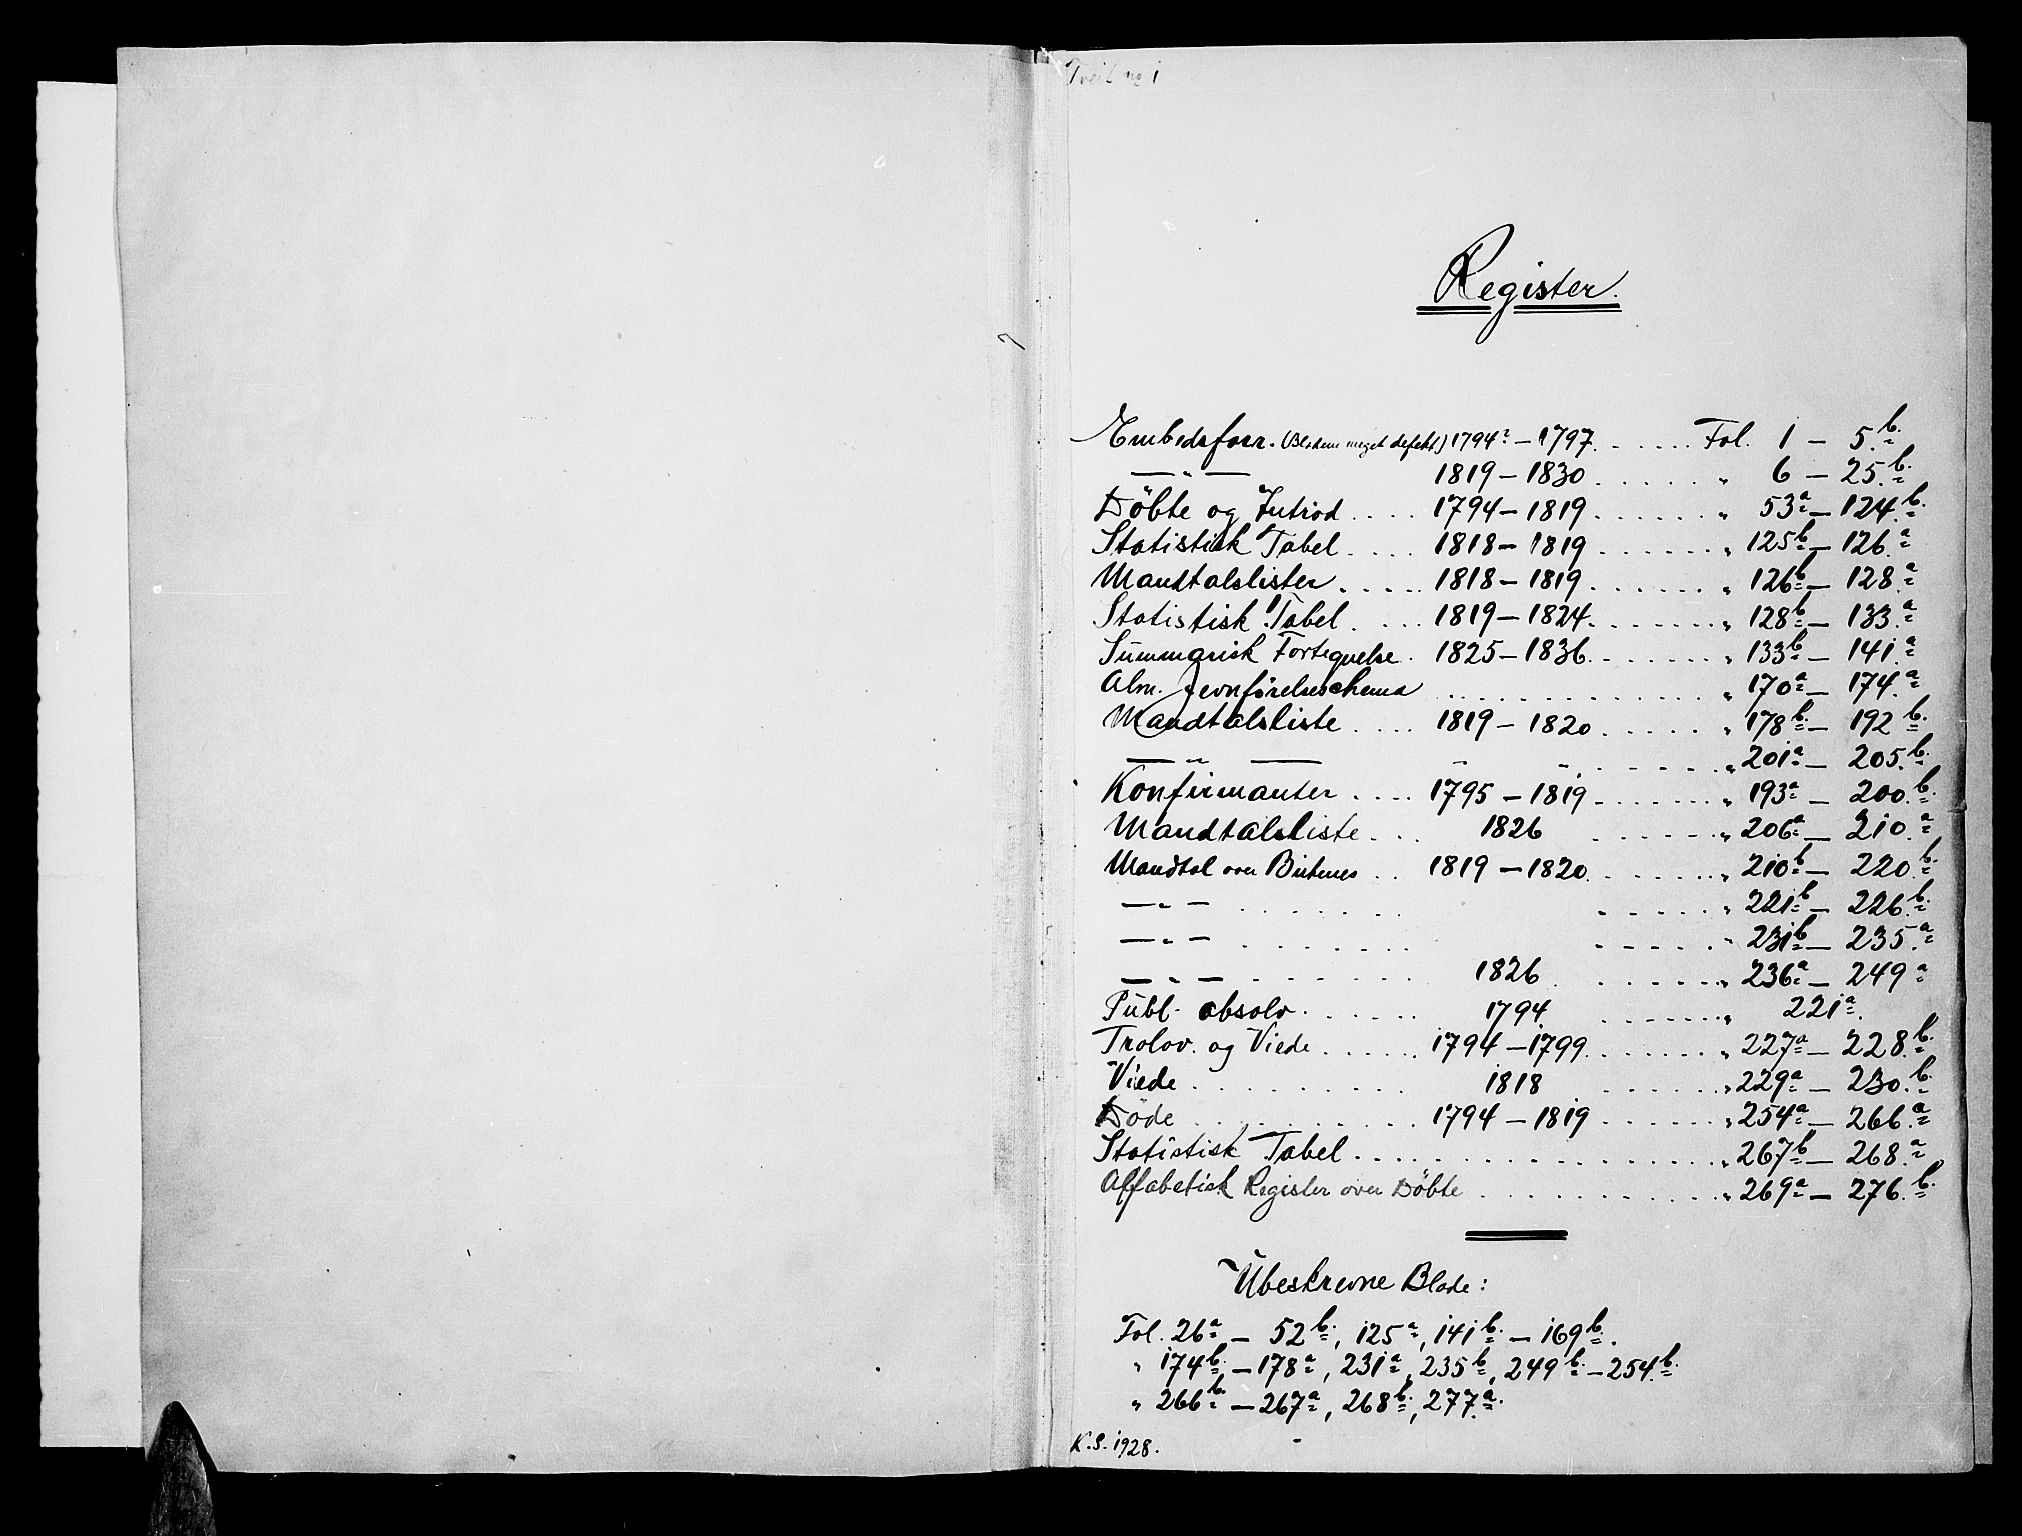 Tveit no 1
Register.
Embedsforr. (Bladene meget defekt) 1794? – 1797. . . . . . . Fol. 1 – 5.b.
— " — 1819 – 1830 . . . . . . . " 6 – 25.b.
Döbte og Introd. . . . 1794 – 1819 . . . . . . . " 53a – 124.b.
Statistisk Tabel . . . . 1818 – 1819 . . . . . . . " 125b – 126.a
Mandtalslister . . . . . 1818 – 1819 . . . . . . . " 126b – 128.a
Statistisk Tabel . . . . 1819 – 1824 . . . . . . . " 128b – 133.a
Summarisk Fortegnelse . 1825 – 1836 . . . . . . . " 133b – 141.a
Alm. Jevnförelsesschema . . . . . . . . . . . . " 170a – 174.a
Mandtalsliste . . . . 1819 – 1820 . . . . . " 178b – 192 b.
— " — - - . . . . . " 201a – 205.b.
Konfirmanter . . . . 1795 – 1819 . . . . . . . " 193a – 200.b.
Mandtalsliste . . . 1826 . . . . . . " 206a – 210.a
Mandtal over . . 1819 – 1820 . . . . . . . " 210b – 220.b.
— " — . . . . . . . . . . . . " 221b – 226.b.
— " — . . . . . . . . . . . . " 231b – 235.a
— " — . . . . . . . 1826 . . . . . . " 236a – 249 a
Publ. absolv. . . . . . 1794 . . . . . . " 221a.
Trolov. og Viede . . . . . . 1794 – 1799 . . . . . . . " 227a – 228.b.
Viede . . . . . . . . . 1818 . . . . . . " 229a – 230.b.
Döde . . . . . . . . . . 1794 – 1819 . . . . . . " 254a – 266.a
Statistisk Tabel . . . . . . . . . . . . . . . " 267b – 268.a
Alfabetisk Register over Döbte . . . . . . . . . . . " 269a – 276.b.
Ubeskrevne Blade:
Fol. 26a – 52b., 125a, 141b. – 169b.
" 174b. – 178a, 231a, 235b, 249b. – 254.b.
" 266b. – 267a, 268b., 277.a.
K.S. 1928.